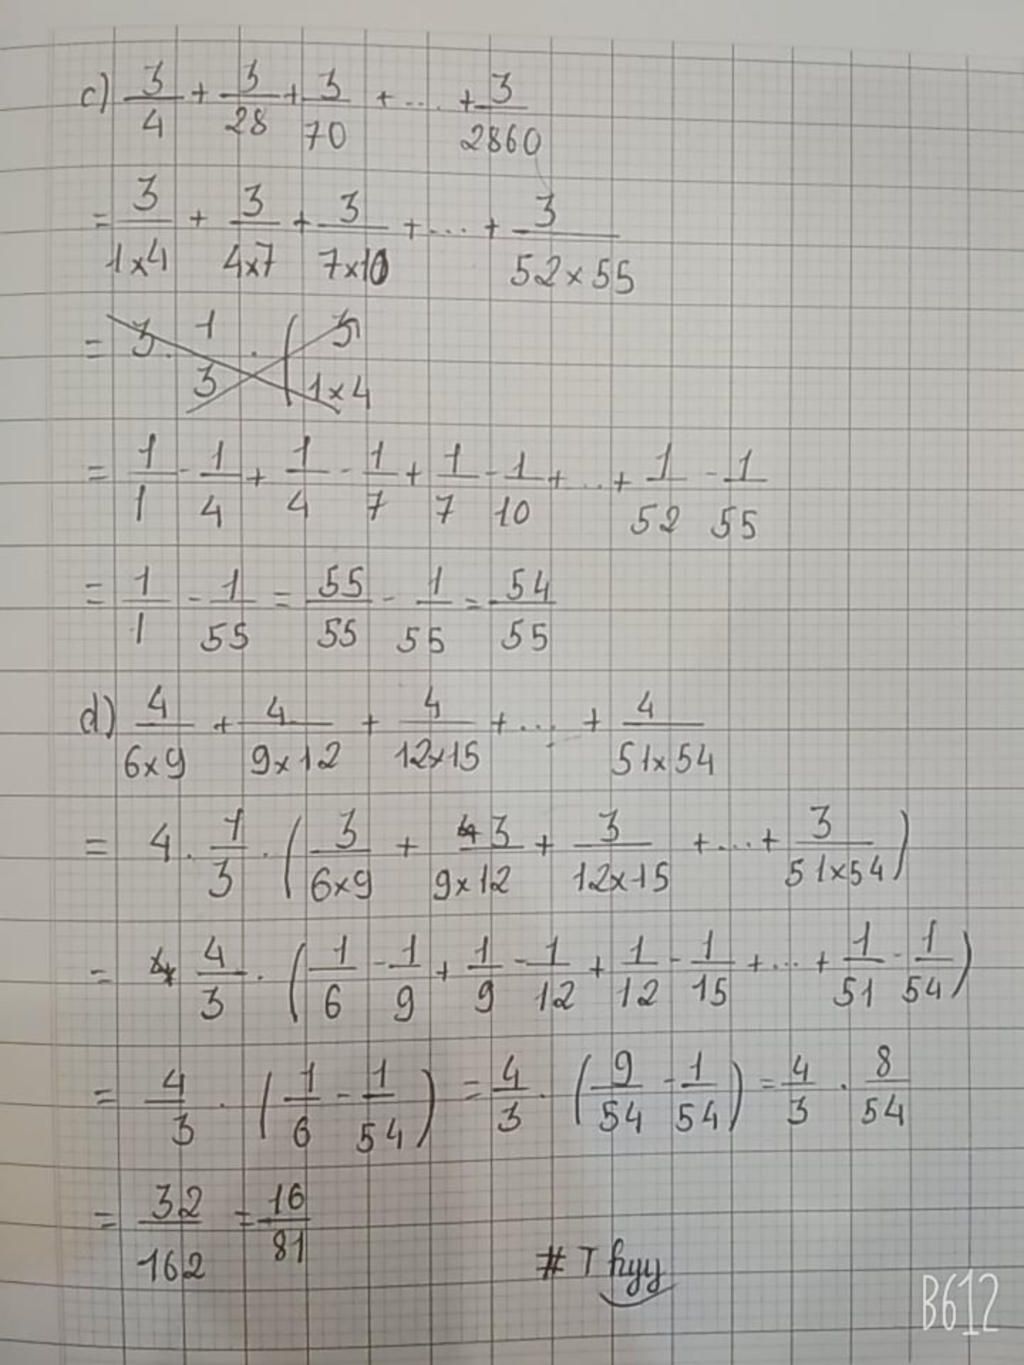 c) 3/4 + 3/28 + 3/70 + .... + 3/2860
= 3/1×4 + 3/4×7 + 3/7×10 + ... + 3/52×55
= 3. 1/3 . ( 3/1×4
= 1/1 - 1/4 + 1/4 - 1/7 + 1/7 - 1/10 + ... + 1/52 - 1/55
= 1/1 - 1/55 = 55/55 - 1/55 = 54/55
d) 4/6×9 + 4/9×12 + 4/12×15 + ... + 4/51×54
= 4 . 1/3 . ( 3/6×9 + 3/9×12 + 3/12×15 + ... + 3/51×54 )
= 4/3 . ( 1/6 - 1/9 + 1/9 - 1/12 + 1/12 - 1/15 + ... + 1/51 - 1/54 )
= 4/3 . ( 1/6 - 1/54 ) = 4/3 . ( 9/54 - 1/54 ) = 4/3 . 8/54
= 32/162 = 16/81
# Thyy
B612